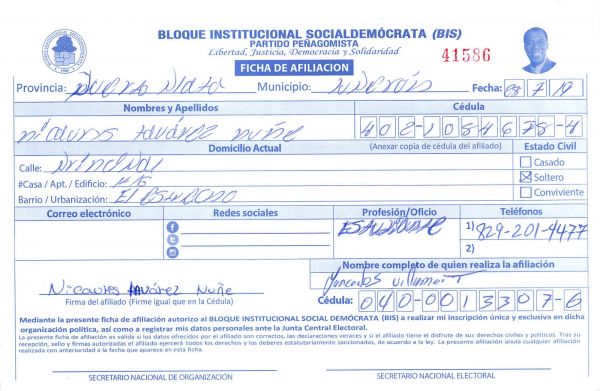 BLOQUE INSTITUCIONAL SOCIALDEMÓCRATA (BIS)
PARTIDO PEÑAGOMISTA
Libertad, Justicia, Democracia y Solidaridad
41586
FICHA DE AFILIACION
Provincia: Puerto Plata Municipio: Fecha: 03/7/19
Nombres y Apellidos Cédula
Nicauris Alvárez Nuñe 402-1084678-4
Domicilio Actual (Anexar copia de cédula del afiliado) Estado Civil
Calle: Principal Casado
#Casa / Apt. / Edificio: #16 Soltero
Barrio / Urbanización: El Conviviente
Correo electrónico Redes sociales Profesión/Oficio Teléfonos
Estudiante 1) 829-201-4477
2)
Nombre completo de quien realiza la afiliación
Nicauris Alvárez Nuñe
Firma del afiliado (Firme igual que en la Cédula) Cédula: 040-0013307-6
Mediante la presente ficha de afiliación autorizo al BLOQUE INSTITUCIONAL SOCIAL DEMÓCRATA (BIS) a realizar mi inscripción única y exclusiva en dicha
organización política, así como a registrar mis datos personales ante la Junta Central Electoral.
La presente ficha de afiliación es válida si los datos ofrecidos por el afiliado son correctos, las declaraciones veraces y si el afiliado tiene el disfrute de sus derechos civiles y políticos. Tras su
recepción, sello y firmas autorizadas el afiliado ejercerá todos los derechos y los deberes estatutariamente sancionados, de acuerdo a la ley. La presente afiliación anula cualquier afiliación
realizada con anterioridad a la fecha que aparece en esta ficha.
SECRETARIO NACIONAL DE ORGANIZACIÓN SECRETARIO NACIONAL ELECTORAL